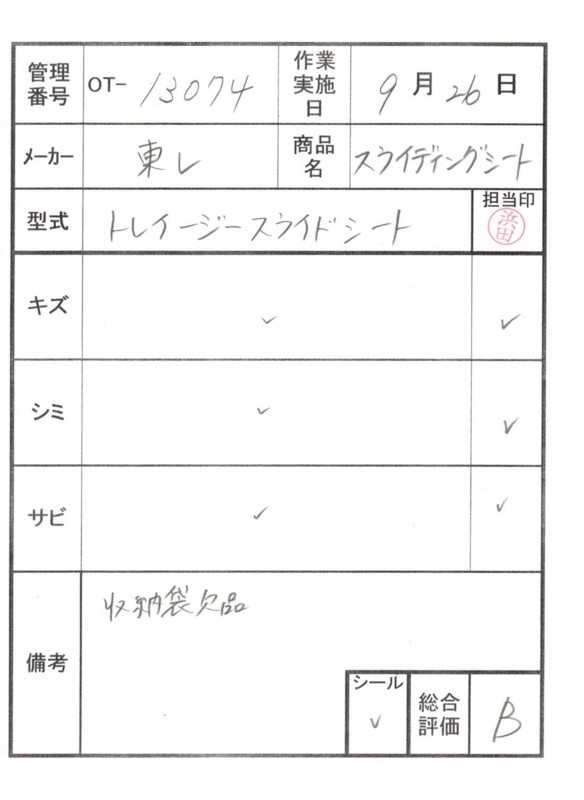 管理番号 OT- 13074 作業実施日 9月26日
メーカー 東レ 商品名 スライディングシート
型式 トレイージースライドシート 担当印 浜田
キズ ✓ ✓
シミ ✓ ✓
サビ ✓ ✓
備考 収納袋欠品
シール ✓ 総合評価 B